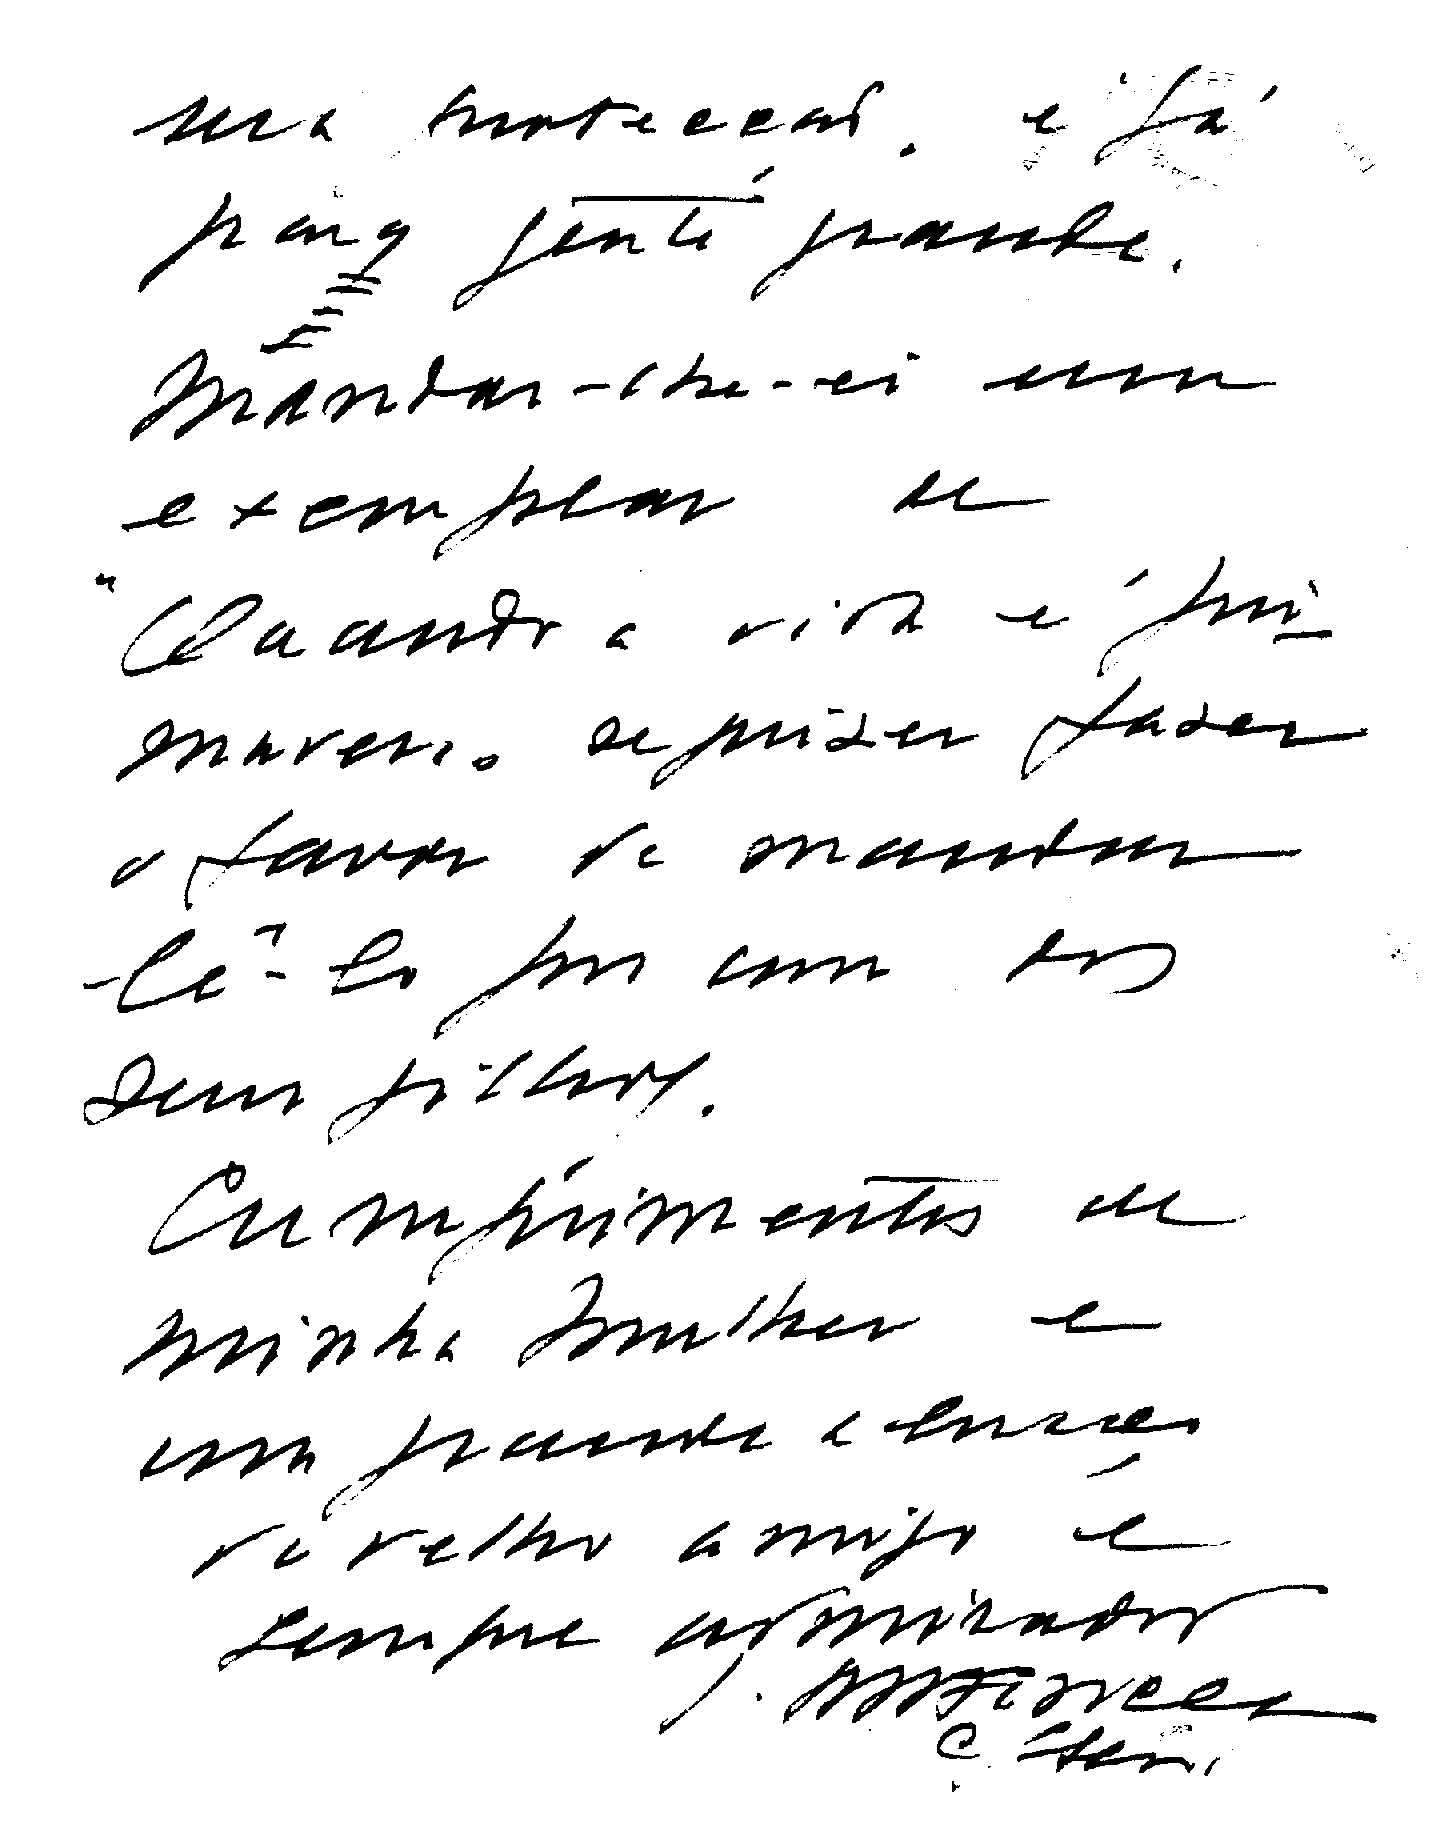 sua protecção. e já
para gente grande.
Mandar-lhe-ei um
exemplar de
"Quando a vida é pri-
mavera. se quizer fazer
o favor de mandar
-lê-lo por um dos
seus filhos.
Cumprimentos de
minha mulher e
um grande abraço
do velho amigo e
sempre admirador
J.